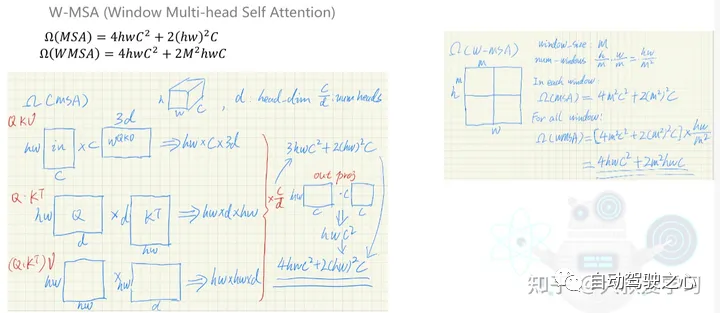 W-MSA (Window Multi-head Self Attention)
Ω(MSA) = 4hwC² + 2(hw)²C
Ω(WMSA) = 4hwC² + 2M²hwC
Ω(MSA)
h
w
C
, d: head-dim C/d: num heads
QKV
3d
hw in × C W^QKV ⇒ hw × C × 3d
C
Q·K^T
hw Q × d K^T ⇒ hw × d × hw
d
hw
(Q·K^T)V
hw × hw ⇒ hw × hw × d
hw
d
× C/d
3hwC² + 2(hw)²C
out proj
hw · C
C
C
hwC²
4hwC² + 2(hw)²C
Ω(W-MSA)
m
m
h
w
window-size: M
num-windows h/m · w/m = hw/m²
In each window:
Ω(MSA) = 4m²C² + 2(m²)²C
For all window:
Ω(WMSA) = [4m²C² + 2(m²)²C] × hw/m²
= 4hwC² + 2m²hwC
知乎
自动驾驶之心